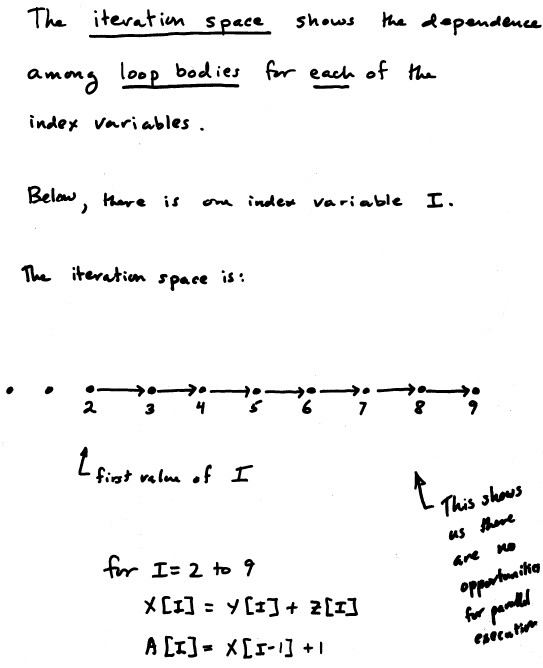 The iteration space shows the dependence
among loop bodies for each of the
index variables.
Below, there is one index variable I.
The iteration space is:
2 3 4 5 6 7 8 9
first value of I
This shows
us there
are no
opportunities
for parallel
execution
for I = 2 to 9
X[I] = Y[I] + Z[I]
A[I] = X[I-1] + 1